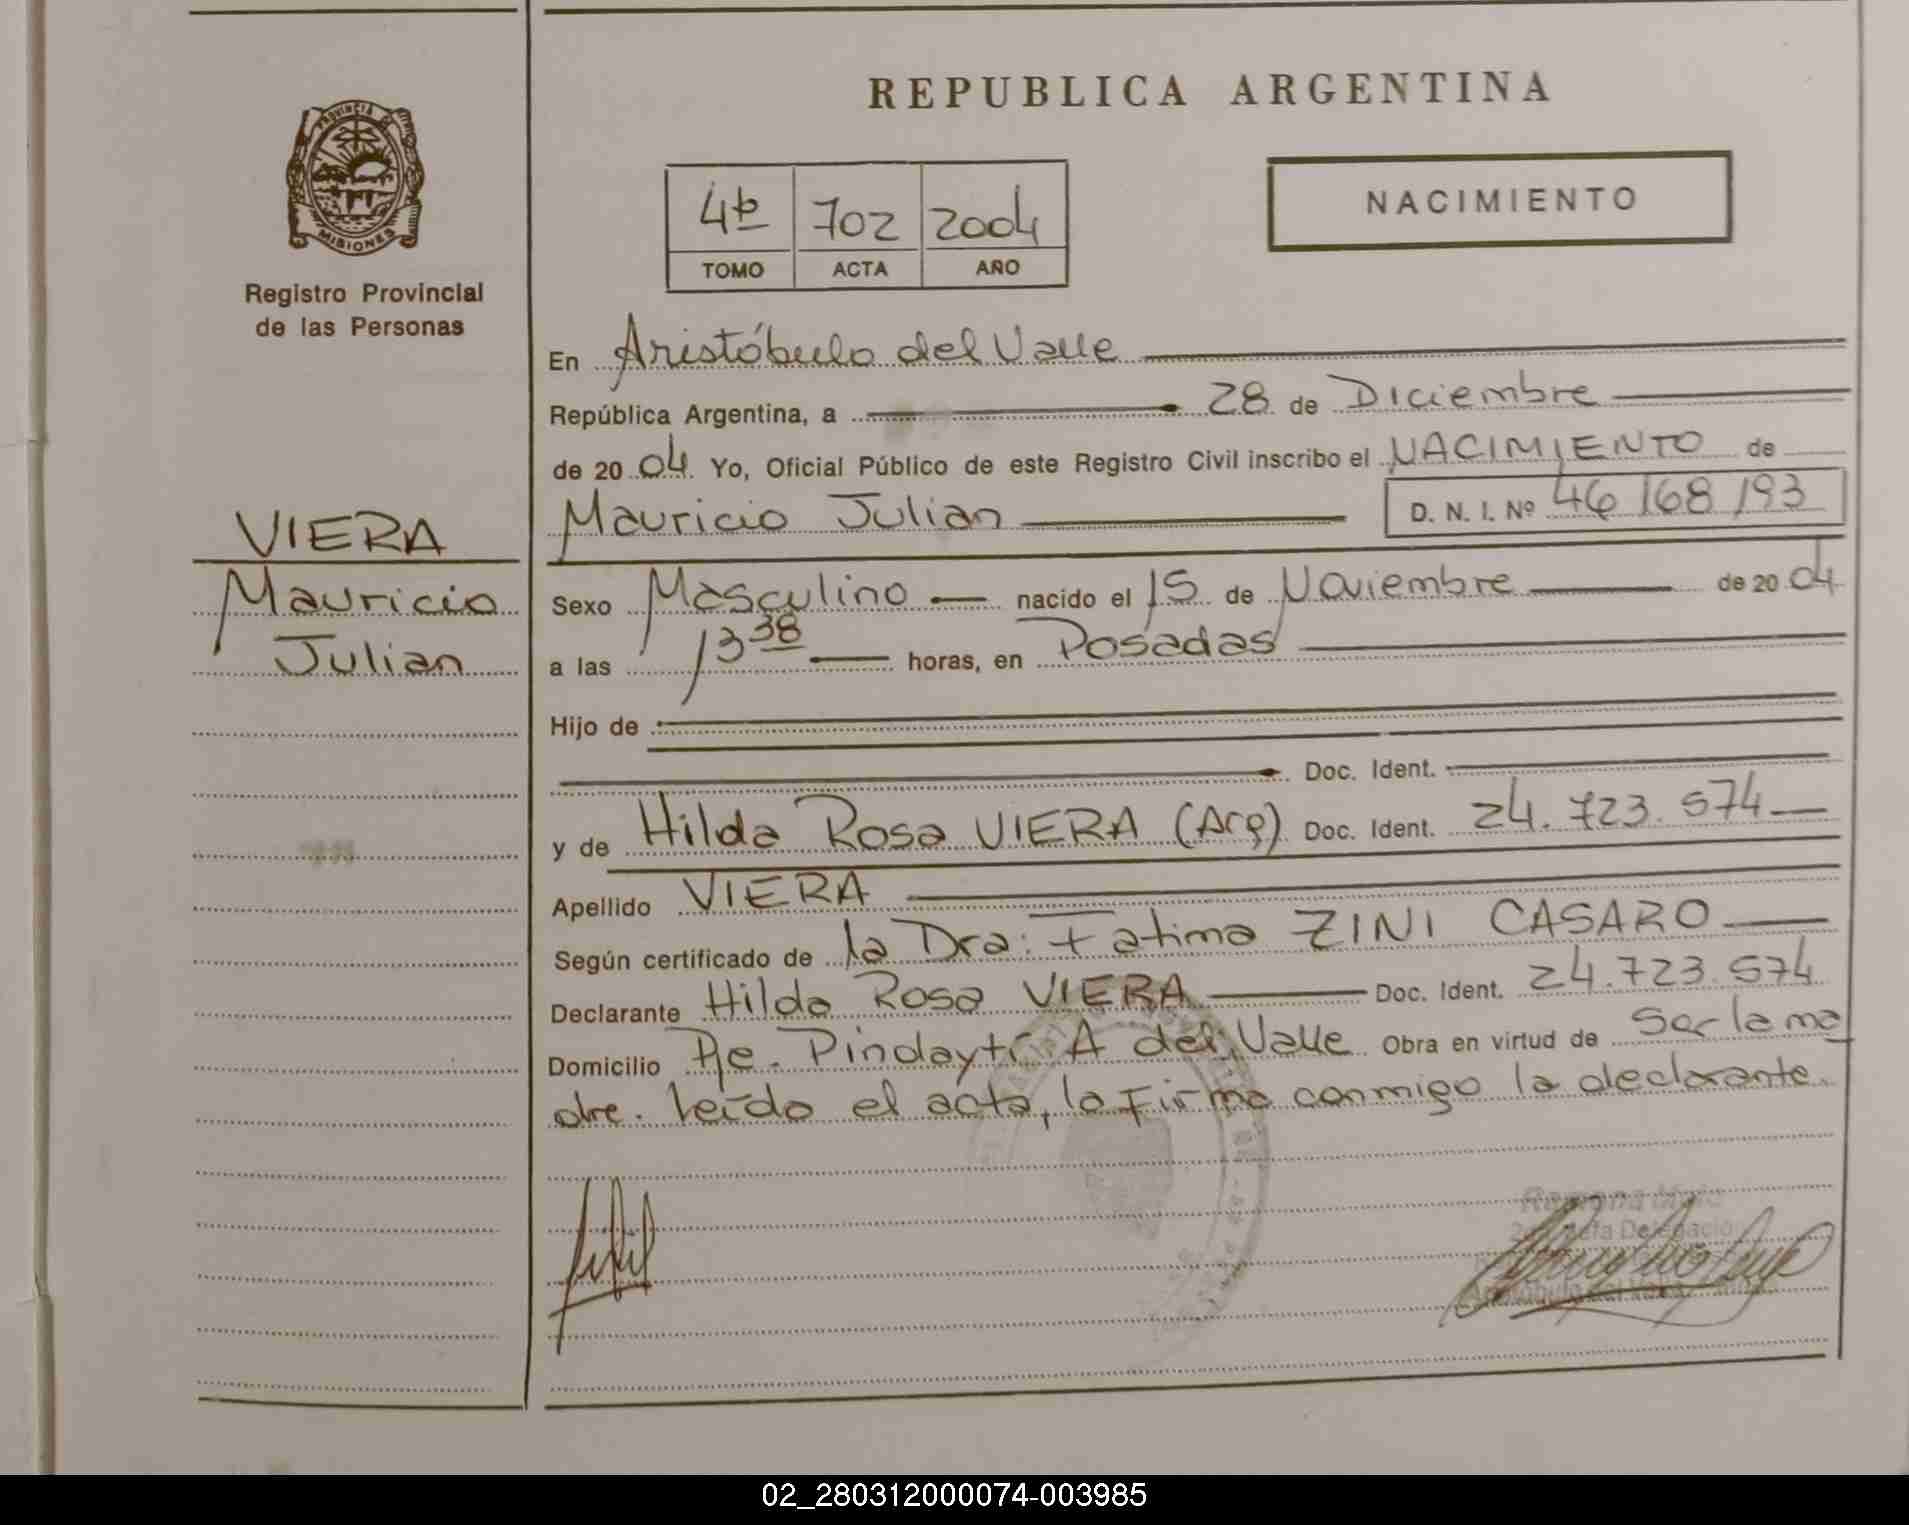 REPUBLICA ARGENTINA
PROVINCIA DE
MISIONES
Registro Provincial
de las Personas
4b 702 2004
TOMO ACTA AÑO
NACIMIENTO
VIERA
Mauricio
Julian
En Aristóbulo del Valle
República Argentina, a 28 de Diciembre
de 20 04. Yo, Oficial Público de este Registro Civil inscribo el NACIMIENTO de
Mauricio Julian D. N. I. Nº 46 168 193
Sexo Masculino nacido el 15 de Noviembre de 20 04
a las 13 38 horas, en Posadas
Hijo de
Doc. Ident.
y de Hilda Rosa VIERA (Arg) Doc. Ident. 24.723.574
Apellido VIERA
Según certificado de la Dra: Fatima ZINI CASARO
Declarante Hilda Rosa VIERA Doc. Ident. 24.723.574
Domicilio Pje. Pindaytí A del Valle Obra en virtud de ser la ma
dre. Leído el acta, la firma conmigo la declarante.
Ramona
Delegación
Aristóbulo del Valle
02_280312000074-003985